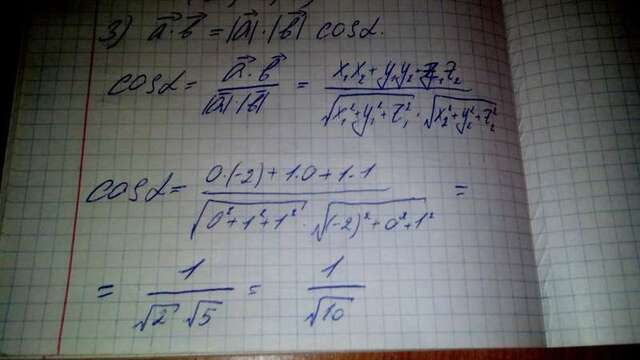 3) a⃗·b⃗ = |a⃗|·|b⃗| cosα.
cosα = a⃗·b⃗ / |a⃗|·|b⃗| = x₁x₂+y₁y₂+z₁z₂ / √(x₁²+y₁²+z₁²)·√(x₂²+y₂²+z₂²)
cosα = 0·(-2)+1·0+1·1 / √(0²+1²+1²)·√((-2)²+0²+1²) =
= 1 / √2·√5 = 1 / √10